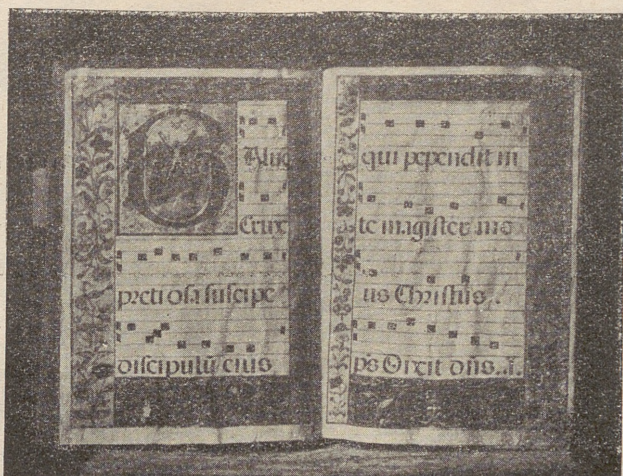 SAlue
Crux
preti osa suscipe
discipulū eius
qui pependit in
te magister me
us Christus..
ps Dixit dñs..i.